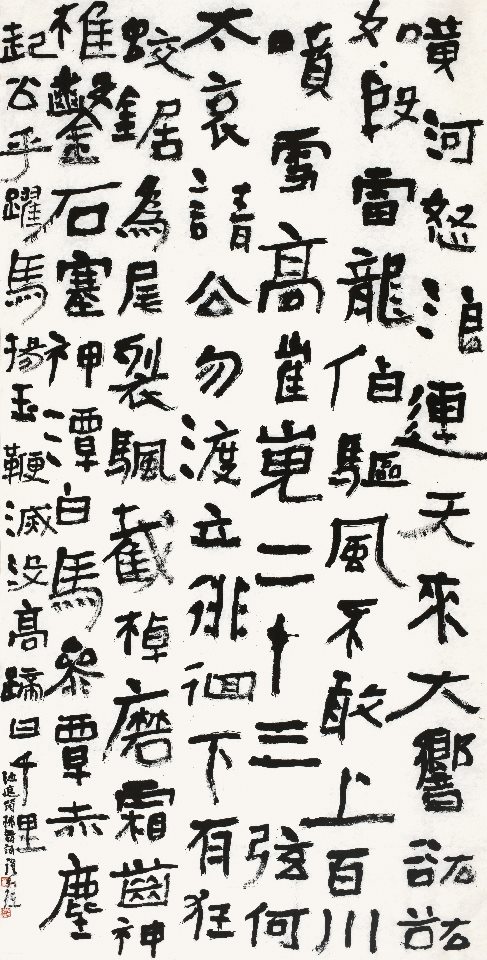 黃河怒浪連天來大響谹谹
如殷雷龍伯驅風不敢上百川
噴雪高崔嵬二十三弦何
太哀請公勿渡立徘徊下有狂
蛟鋸為尾裂颿截棹磨霜齒神
椎鑿石塞神潭白馬參覃赤塵
起公乎躍馬揚玉鞭滅沒高蹄日千里